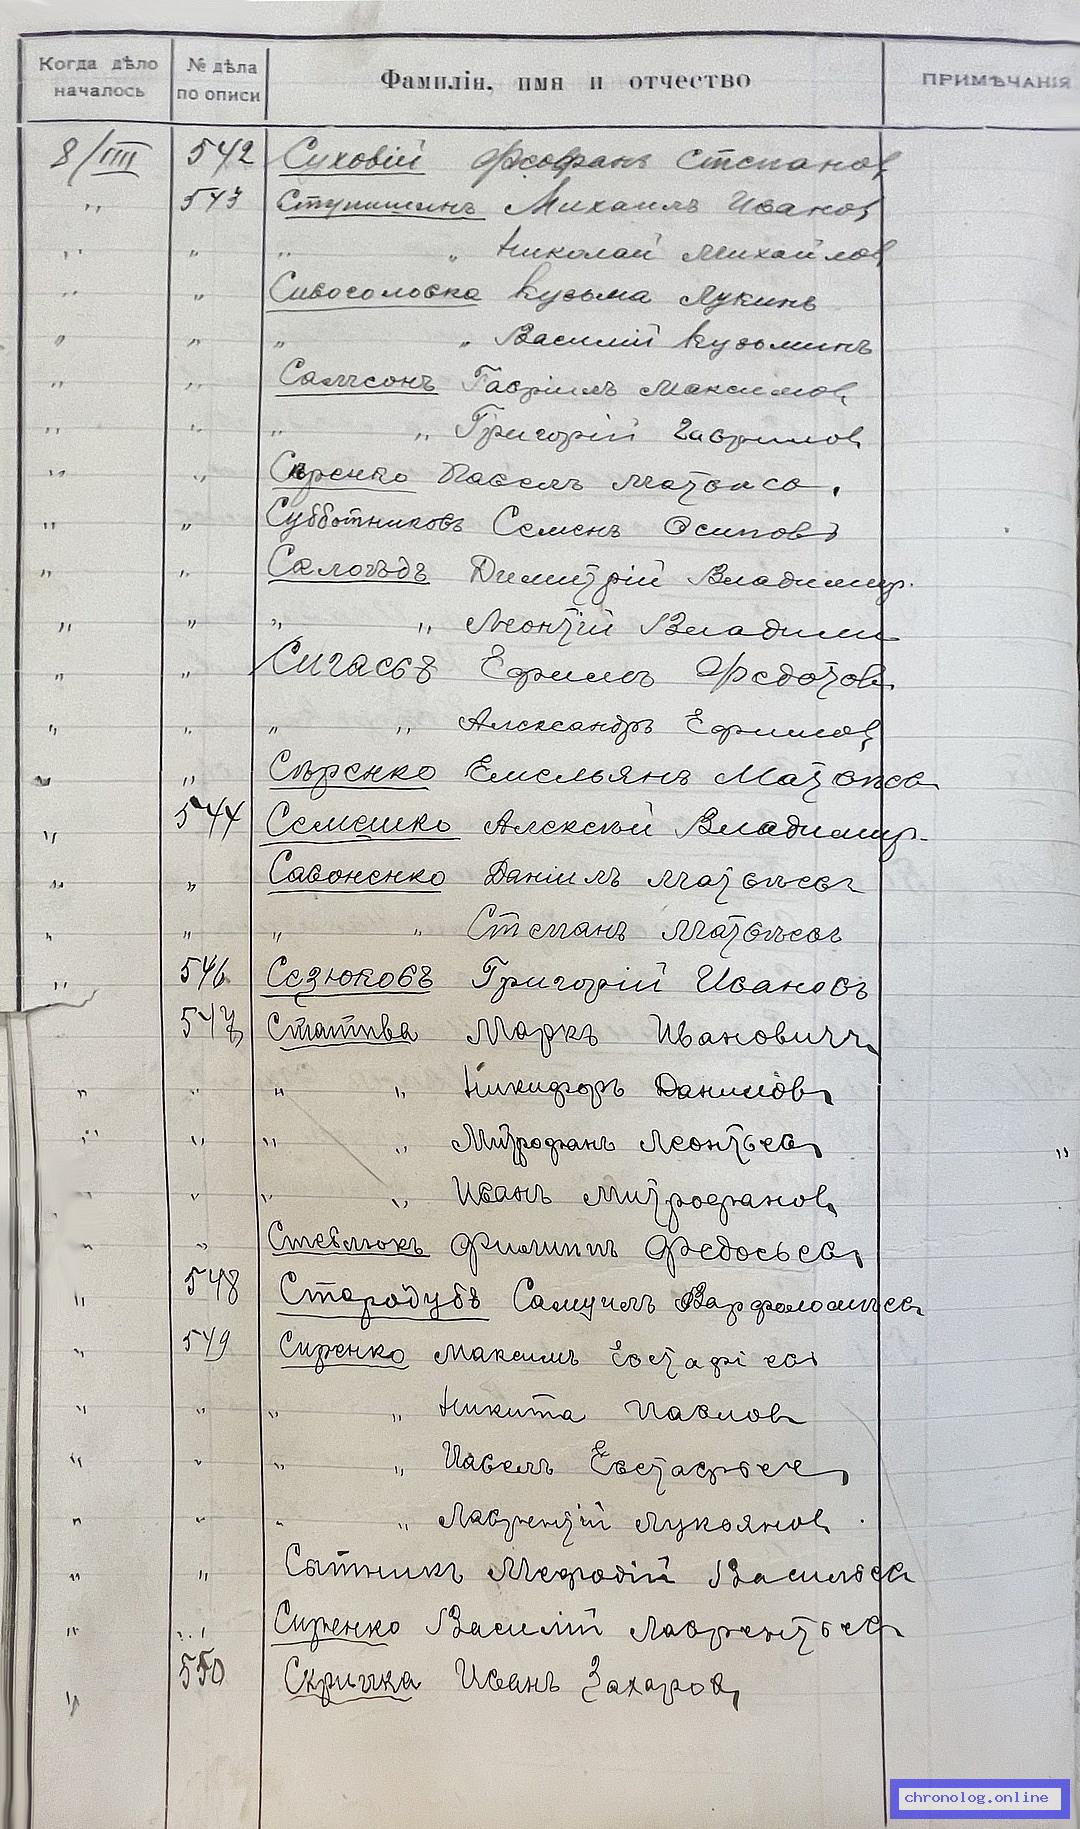 Когда дѣло началось № дѣла по описи Фамилія, имя и отчество ПРИМѢЧАНІЯ
8/III 542 Суховій Феофанъ Степанов
" 543 Ступишинъ Михаилъ Иванов
" " " " Николай Михайлов
" " Сивосоловка Кузьма Лукинъ
" " " " Василій Кузьминъ
" " Самсонъ Гавріилъ Максимов
" " " " Григорій Гаврилов
" " Сиренко Павелъ Матвѣев
" " Субботниковъ Семенъ Осиповъ
" " Салогубъ Димитрій Владимир.
" " " " Леонтій Владими
" " Сигаевъ Ефимъ Федотов
" " " " Александръ Ефимов
" " Сѣренко Емельянъ Матвѣев
" 544 Семешко Алексѣй Владимир.
" " Савоненко Даніилъ Матвѣев
" " " " Степанъ Матвѣев
" 546 Сезюковъ Григорій Ивановъ
547 Статива Маркъ Иванович
" " " " Никифоръ Данилов
" " " " Митрофанъ Леонтьев "
" " " " Иванъ Митрофанов
" " Стеблюкъ Филиппъ Федосьев
" 548 Стародубъ Самуилъ Варфоломѣев
" 549 Сиренко Максимъ Евстафіев
" " " " Никита Павлов
" " " " Павелъ Евстафьев
" " " " Лаврентій Лукьянов
" " Сытникъ Мефодій Васильев
" " Сиренко Василій Лаврентьев
" 550 Скрипка Иванъ Захаров
chronolog.online